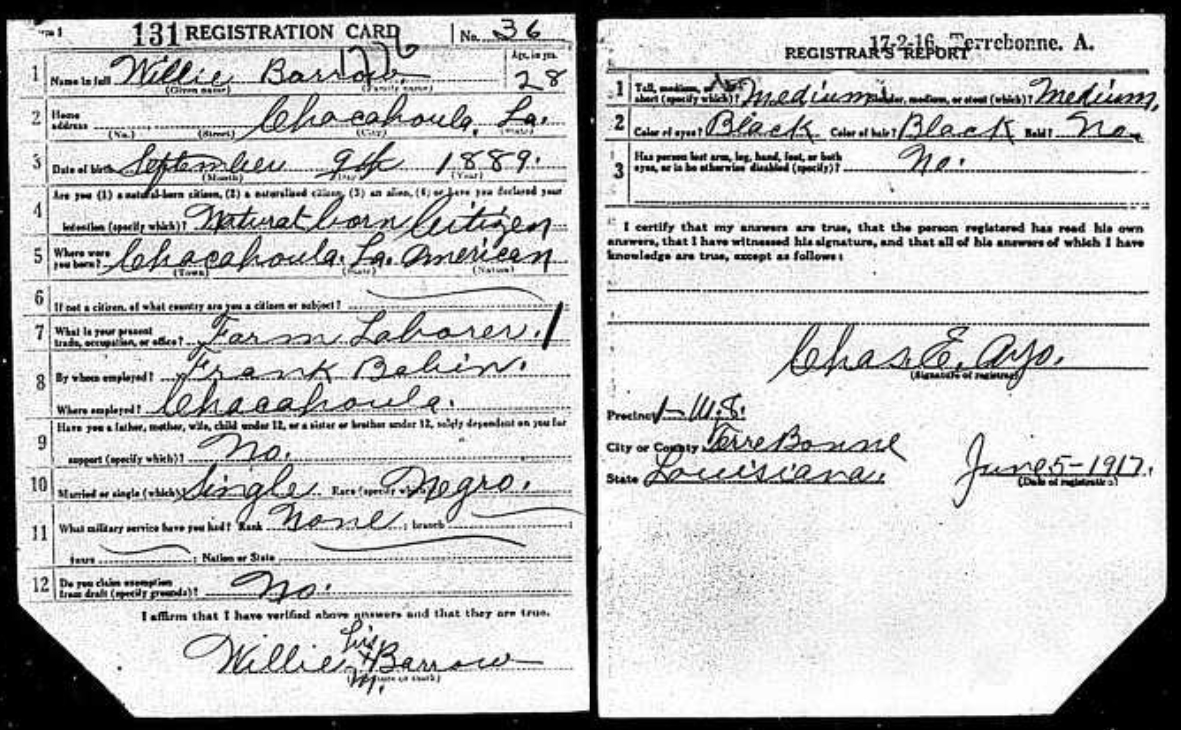 131 REGISTRATION CARD No. 36
1776
1 Name in full Willie Barrow Age, in yrs. 28
(Given name) (Family name)
2 Home address Chacahoula, La.
(No.) (Street) (City) (State)
3 Date of birth September 9th 1889.
(Month) (Day) (Year)
Are you (1) a natural-born citizen, (2) a naturalized citizen, (3) an alien, (4) or have you declared your
4 intention (specify which)? Natural born Citizen
5 Where were you born? Chacahoula. La. American
(Town) (State) (Nation)
6 If not a citizen, of what country are you a citizen or subject?
7 What is your present trade, occupation, or office? Farm Laborer.
8 By whom employed? Frank Babin.
Where employed? Chacahoula.
9 Have you a father, mother, wife, child under 12, or a sister or brother under 12, solely dependent on you for
support (specify which)? No.
10 Married or single (which)? Single Race (specify which)? Negro.
11 What military service have you had? Rank None; branch
years ; Nation or State
12 Do you claim exemption from draft (specify grounds)? No.
I affirm that I have verified above answers and that they are true.
his
Willie X Barrow
M.
(Signature or mark)
17-2-16 Terrebonne. A.
REGISTRAR'S REPORT
1 Tall, medium, or short (specify which)? Medium Slender, medium, or stout (which)? Medium.
2 Color of eyes? Black Color of hair? Black Bald? No.
3 Has person lost arm, leg, hand, foot, or both
eyes, or is he otherwise disabled (specify)? No.
I certify that my answers are true, that the person registered has read his own
answers, that I have witnessed his signature, and that all of his answers of which I have
knowledge are true, except as follows:
Chas. E. Ayo.
(Signature of registrar)
Precinct 1-W.8.
City or County TerreBonne
State Louisiana. June 5-1917.
(Date of registration)